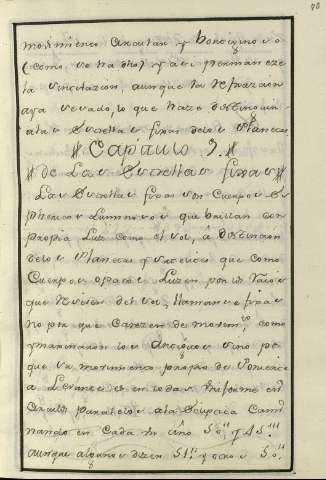 movimiento circular, y
(como se ha dho) y assi permaneze
la vincilazion, aunque la refrazion
aya cesado, lo que haze distinguir
a las Estrellas fixas de los Planetas
Capitulo 9.
de Las Estrellas fixas
Las Estrellas fixas son Cuerpos Es
phericos Luminosos que brillan con
propia Luz como el sol, â distincion
de los Planetas que como
Cuerpos opacos Luzen por los raios
que reciven del sol, llamanse fixas
no por que Carezen de movim.to, como
ymaginaron los Antiguos sino por
que su movimiento propio de Poniente
a Levante es en todas uniforme en
Circulos paralelos a la Ecliptica Cami
nando en Cada un año 50'' y 45'''
aunque algunos dizen 51'' y otros 50''